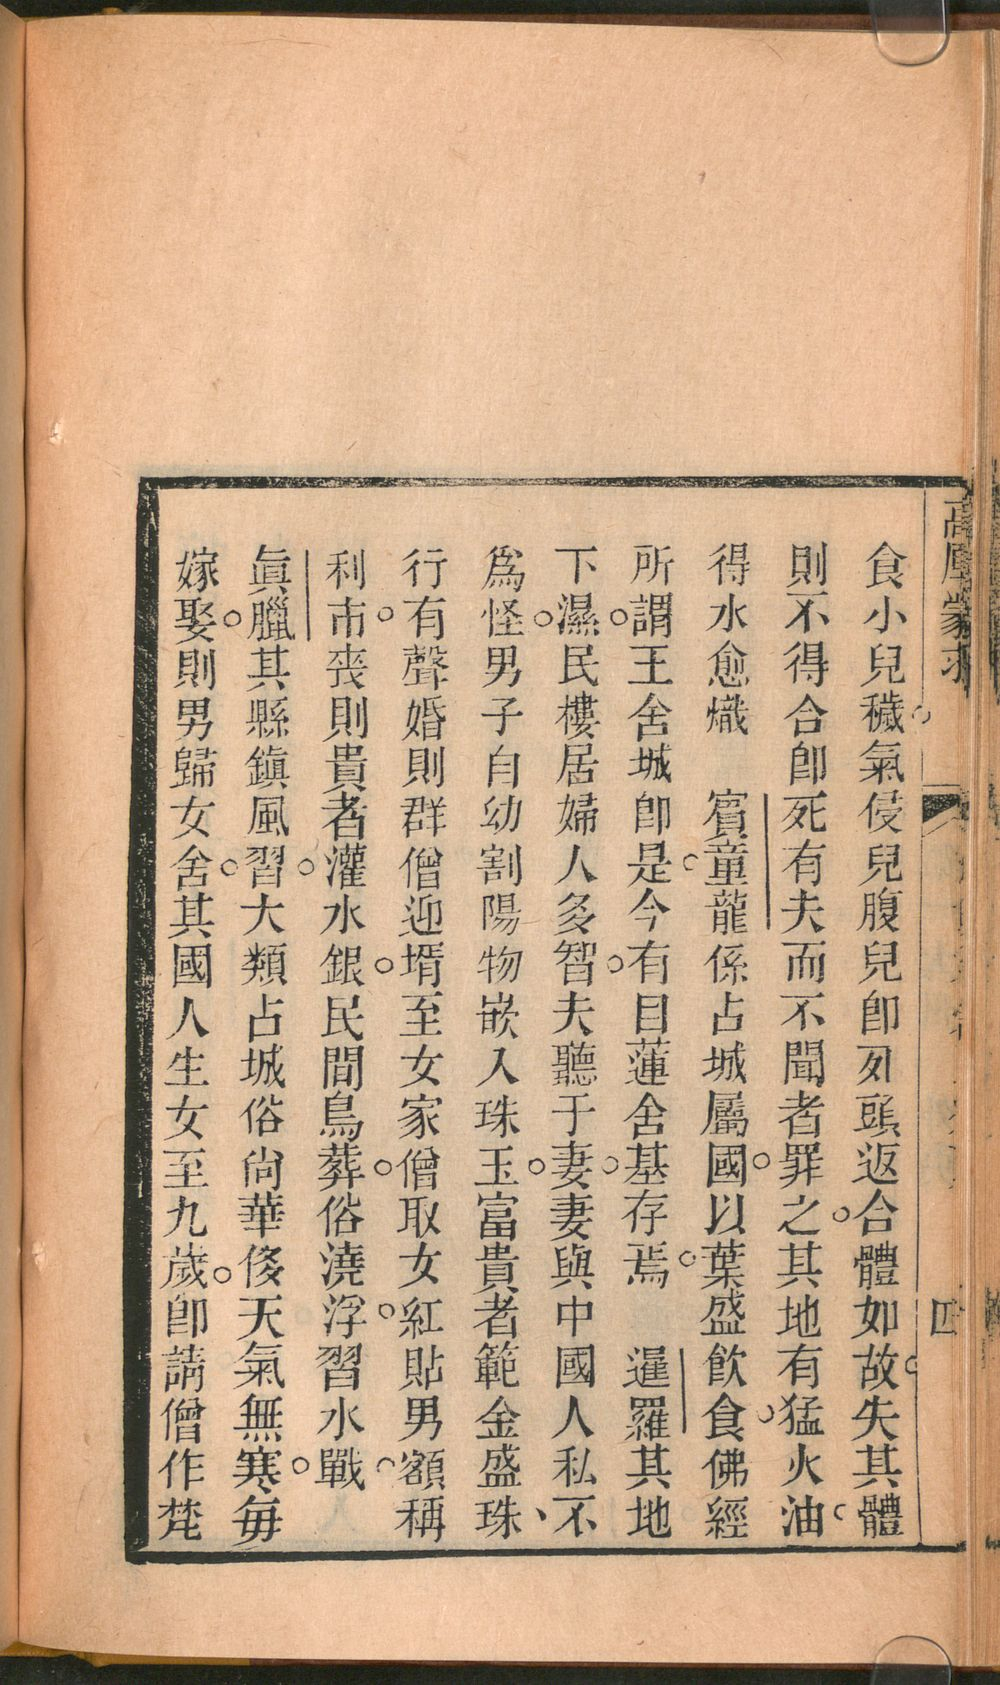 高厚蒙求
四
食小兒穢氣侵兒腹兒卽死頭返合體如故失其體
則不得合卽死有夫而不聞者罪之其地有猛火油
得水愈熾　賓童龍係占城屬國以葉盛飲食佛經
所謂王舍城卽是今有目蓮舍基存焉　暹羅其地
下濕民樓居婦人多智夫聽于妻妻與中國人私不
爲怪男子自幼割陽物嵌入珠玉富貴者範金盛珠
行有聲婚則群僧迎壻至女家僧取女紅貼男額稱
利市喪則貴者灌水銀民間鳥葬俗澆浮習水戰
眞臘其縣鎮風習大類占城俗尙華侈天氣無寒每
嫁娶則男歸女舍其國人生女至九歲卽請僧作梵